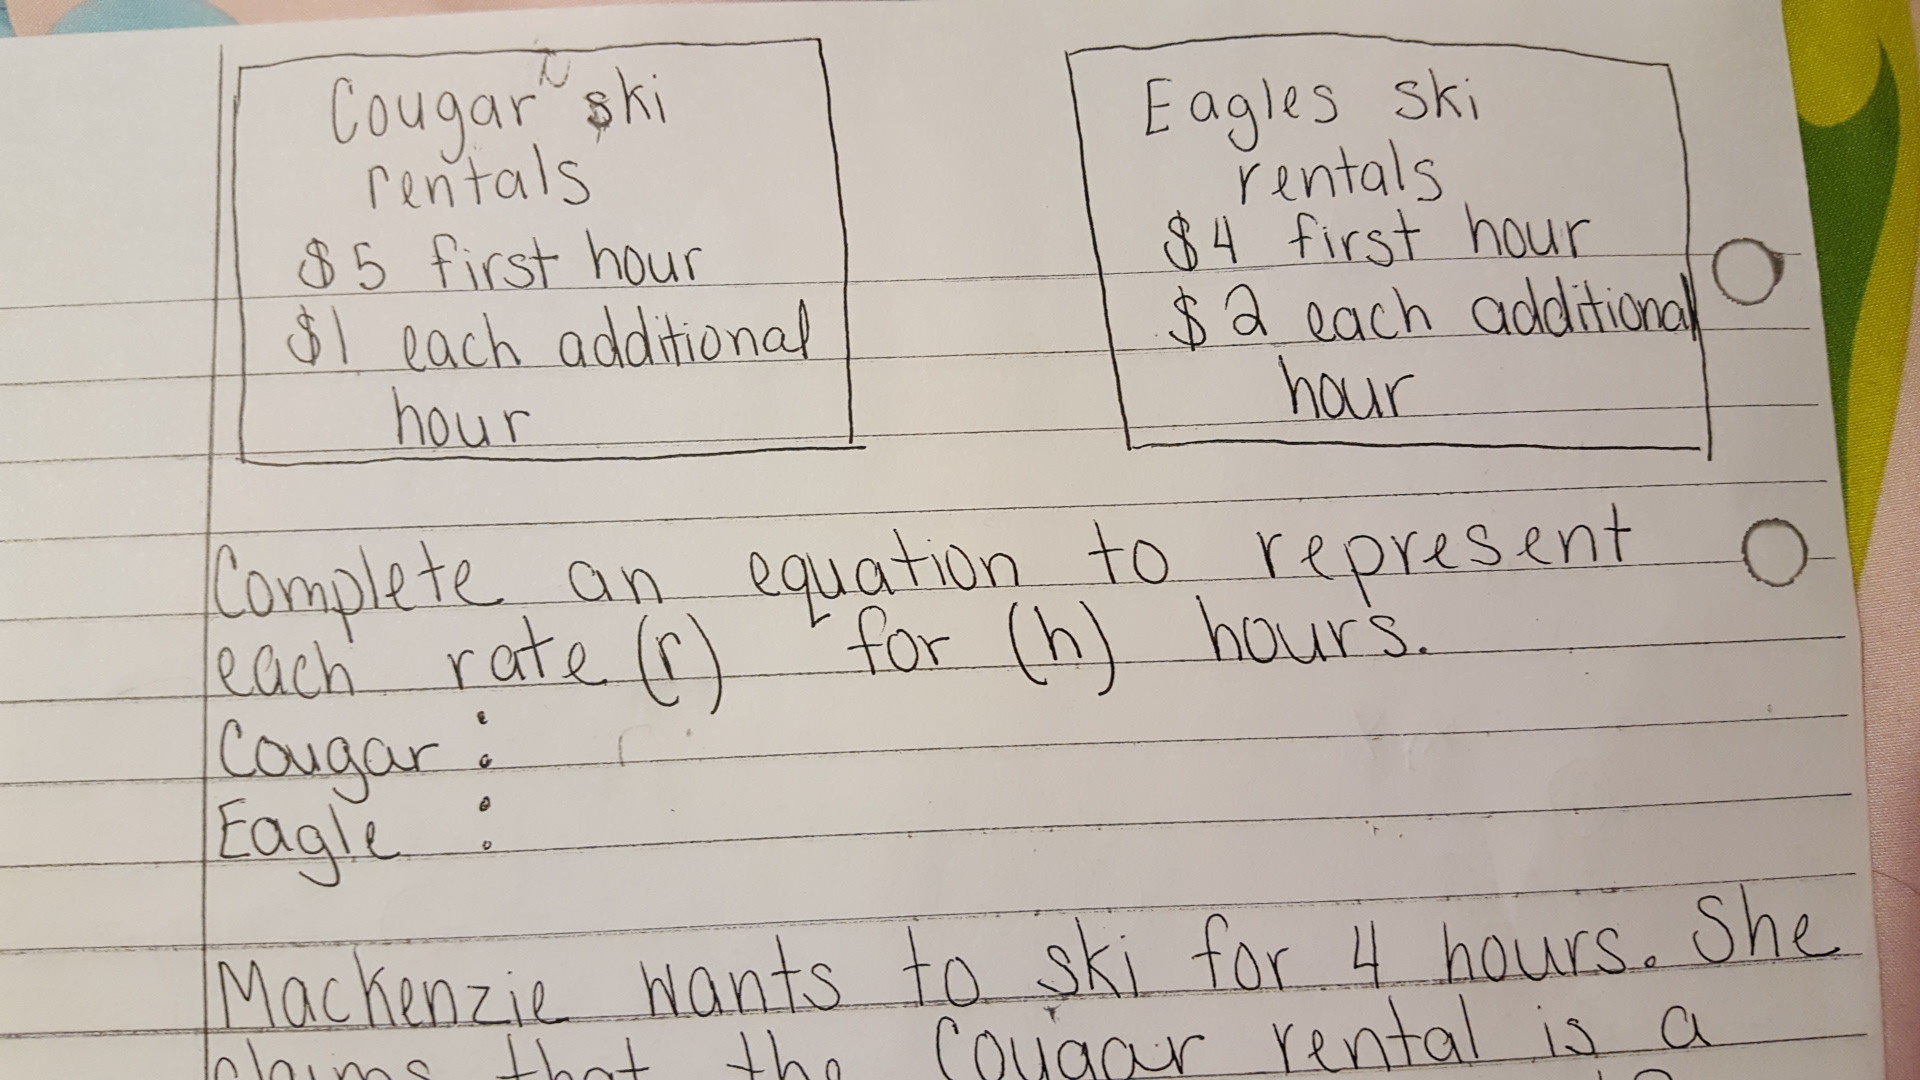 Cougar ski
rentals
$5 first hour
$1 each additional
hour
Eagles ski
rentals
$4 first hour
$2 each additional
hour
Complete an equation to represent
each rate (r) for (h) hours.
Cougar:
Eagle:
Mackenzie wants to ski for 4 hours. She
claims that the Cougar rental is a